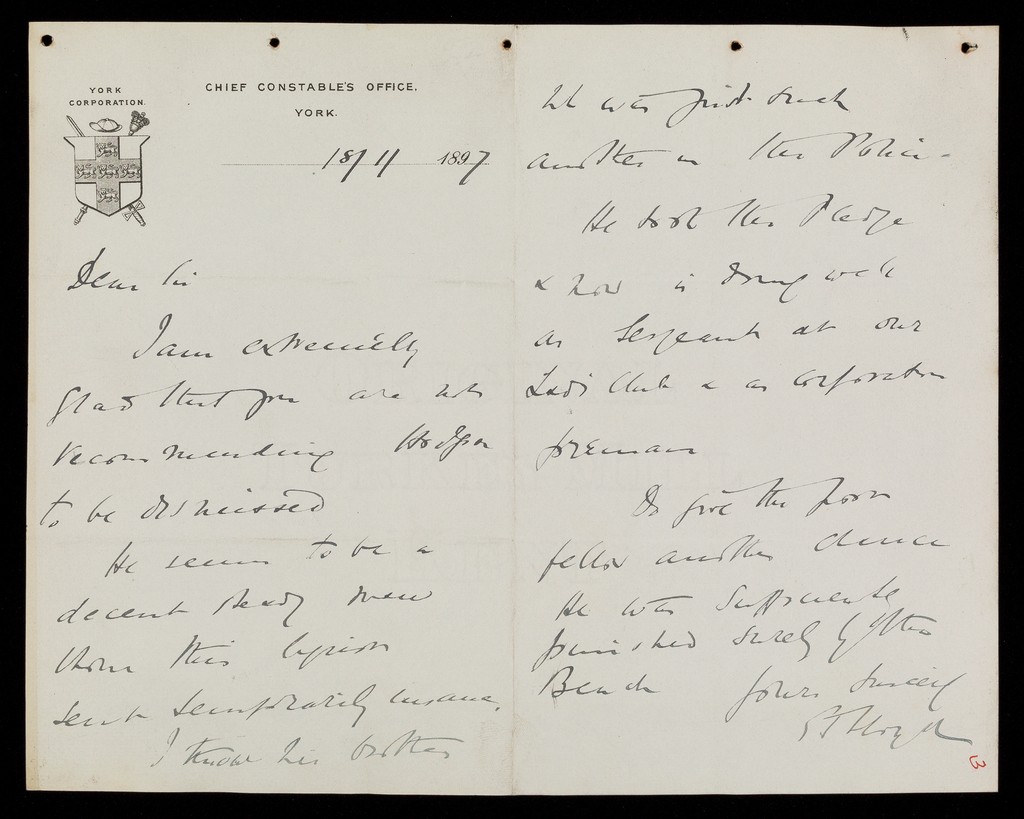 YORK
CORPORATION.
CHIEF CONSTABLE'S OFFICE,
YORK.
18/11 1897
Dear Sir
I am extremely
glad that you are not
recommending Hodgson
to be dismissed
He seems to be a
decent steady man
whom this
sent temporarily insane.
I know his brother
He was just such
another in the Police -
He took the Pledge
& now is doing well
as Sergeant at our
Lads Club & as corporation
foreman
Do give the poor
fellow another chance
He was sufficiently
punished surely by the
Bench Yours sincerely
3